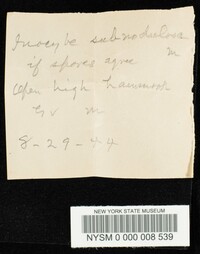 Inocybe subnodulosa
if spores agree m
Open high hammock
Gv m
8-29-44
NEW YORK STATE MUSEUM
NYSM 0 000 008 539